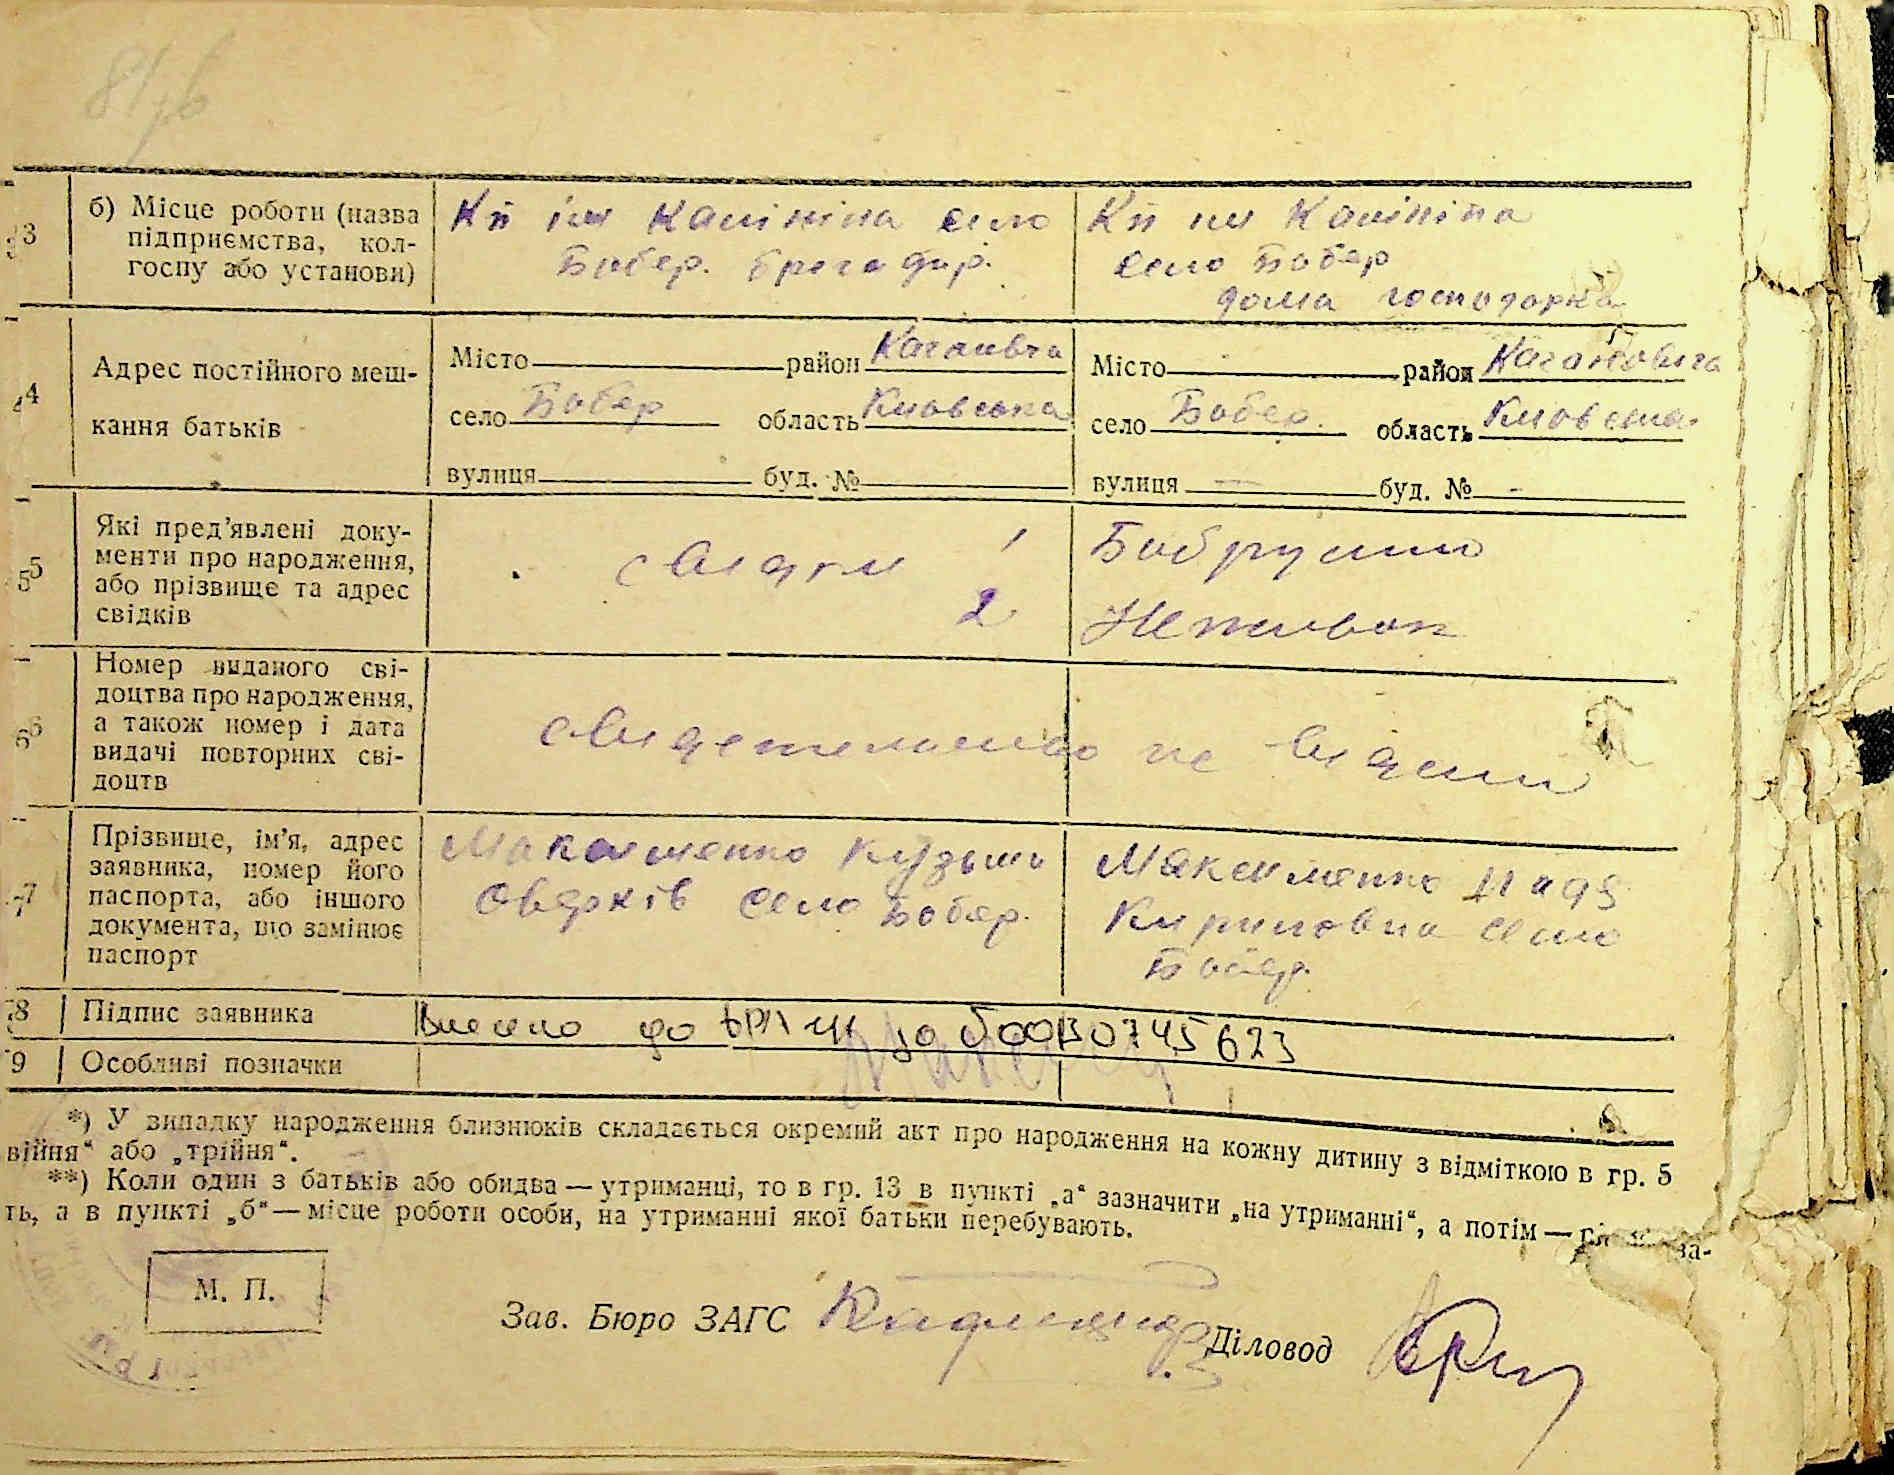 81/б
3
б) Місце роботи (назва підприємства, кол-
госпу або установи)
Кп ім Калініна село
Бобер. брегадир.
Кп им Калініна
село Бобер
дома господорка
4
Адрес постійного меш-
кання батьків
Місто район Кагановіча
село Бобер область Киовська
вулиця буд. №
Місто район Кагановича
село Бобер. область Киовська
вулиця — буд. № -
5
Які пред’явлені доку-
менти про народження,
або прізвище та адрес
свідків
свидки 1 Бобрушко
2 Неживок
6
Номер виданого сві-
доцтва про народження,
а також номер і дата
видачі повторних сві-
доцтв
свидетельство не видано
7
Прізвище, ім’я, адрес
заявника, номер його
паспорта, або іншого
документа, що замінює
паспорт
Максименко Кузьма
Оверків село Бобер.
Максименко Надя
Кириловна село
Бобер.
8
Підпис заявника
Внесено до ДРАЦС за 00130745623
9
Особливі позначки
*) У випадку народження близнюків складається окремий акт про народження на кожну дитину з відміткою в гр. 5
війня“ або „трійня“.
**) Коли один з батьків або обидва — утриманці, то в гр. 13 в пункті „а“ зазначити „на утриманні“, а потім — за-
ть, а в пункті „б“ — місце роботи особи, на утриманні якої батьки перебувають.
М. П.
Зав. Бюро ЗАГС
Діловод